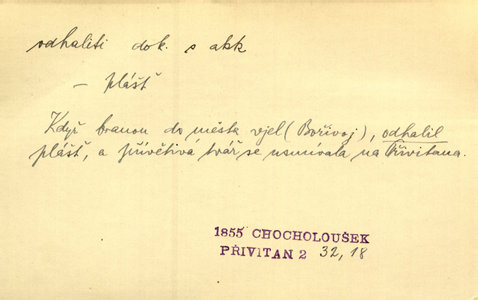 odhaliti dok. s akk
– plášť
Když branou do města vjel (Bořivoj), odhalil
plášť, a přívětivá tvář se usmívala na Přivitana.
1855 CHOCHOLOUŠEK
PŘIVITAN 2 32, 18